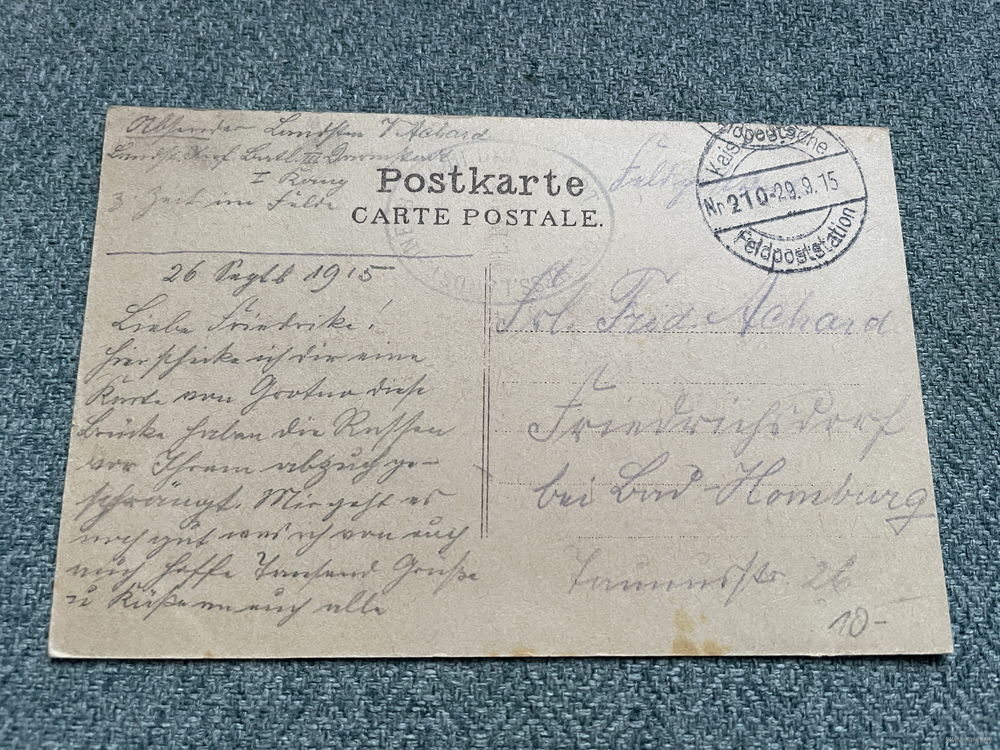 Absender Landstm V Achard
Landst. Inf. Batl. III Darmstadt
I Komp
z Zeit im Felde
Postkarte
CARTE POSTALE.
Feldpost
Nr 210 - 29.9.15
Feldpoststation
26 Septb 1915
Liebe Friedrike!
Hier schicke ich dir eine
Karte von Grotno diese
Brücke haben die Russen
vor Ihrem abzuch ge-
sprängt. Mir geht es
noch gut was ich von euch
auch hoffe Tausend Grüße
u Küße an euch alle
Frl. Frid. Achard
Friedrichsdorf
bei Bad-Homburg
Taunusstr. 26
10-